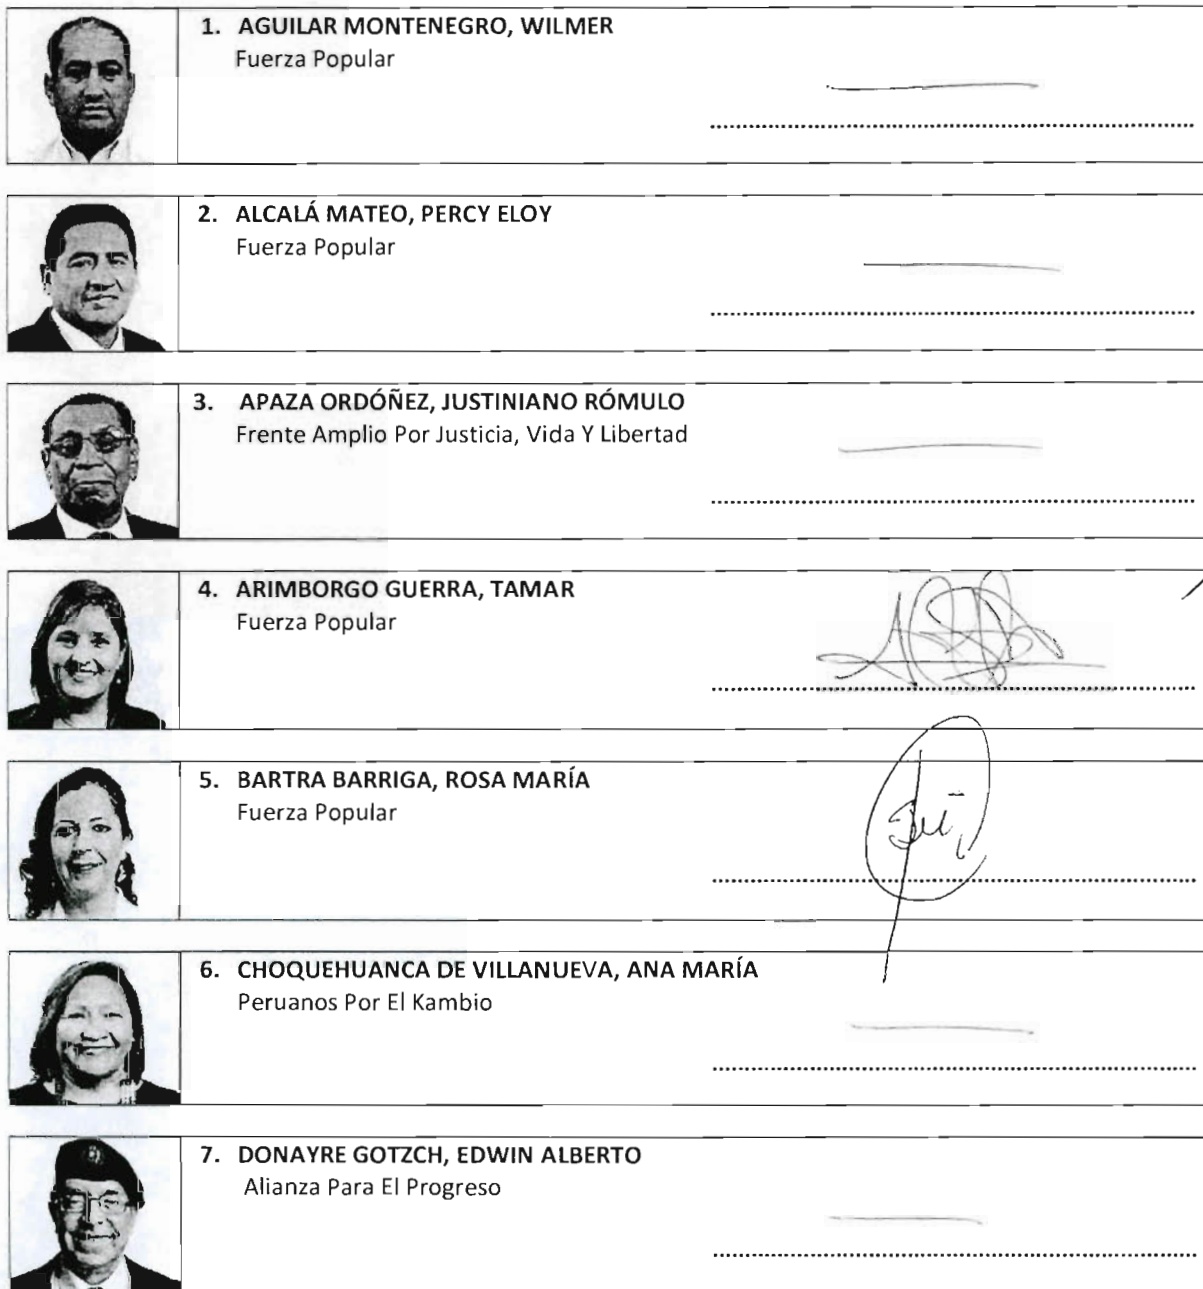 1. AGUILAR MONTENEGRO, WILMER
Fuerza Popular
2. ALCALÁ MATEO, PERCY ELOY
Fuerza Popular
3. APAZA ORDÓÑEZ, JUSTINIANO RÓMULO
Frente Amplio Por Justicia, Vida Y Libertad
4. ARIMBORGO GUERRA, TAMAR
Fuerza Popular
5. BARTRA BARRIGA, ROSA MARÍA
Fuerza Popular
6. CHOQUEHUANCA DE VILLANUEVA, ANA MARÍA
Peruanos Por El Kambio
7. DONAYRE GOTZCH, EDWIN ALBERTO
Alianza Para El Progreso